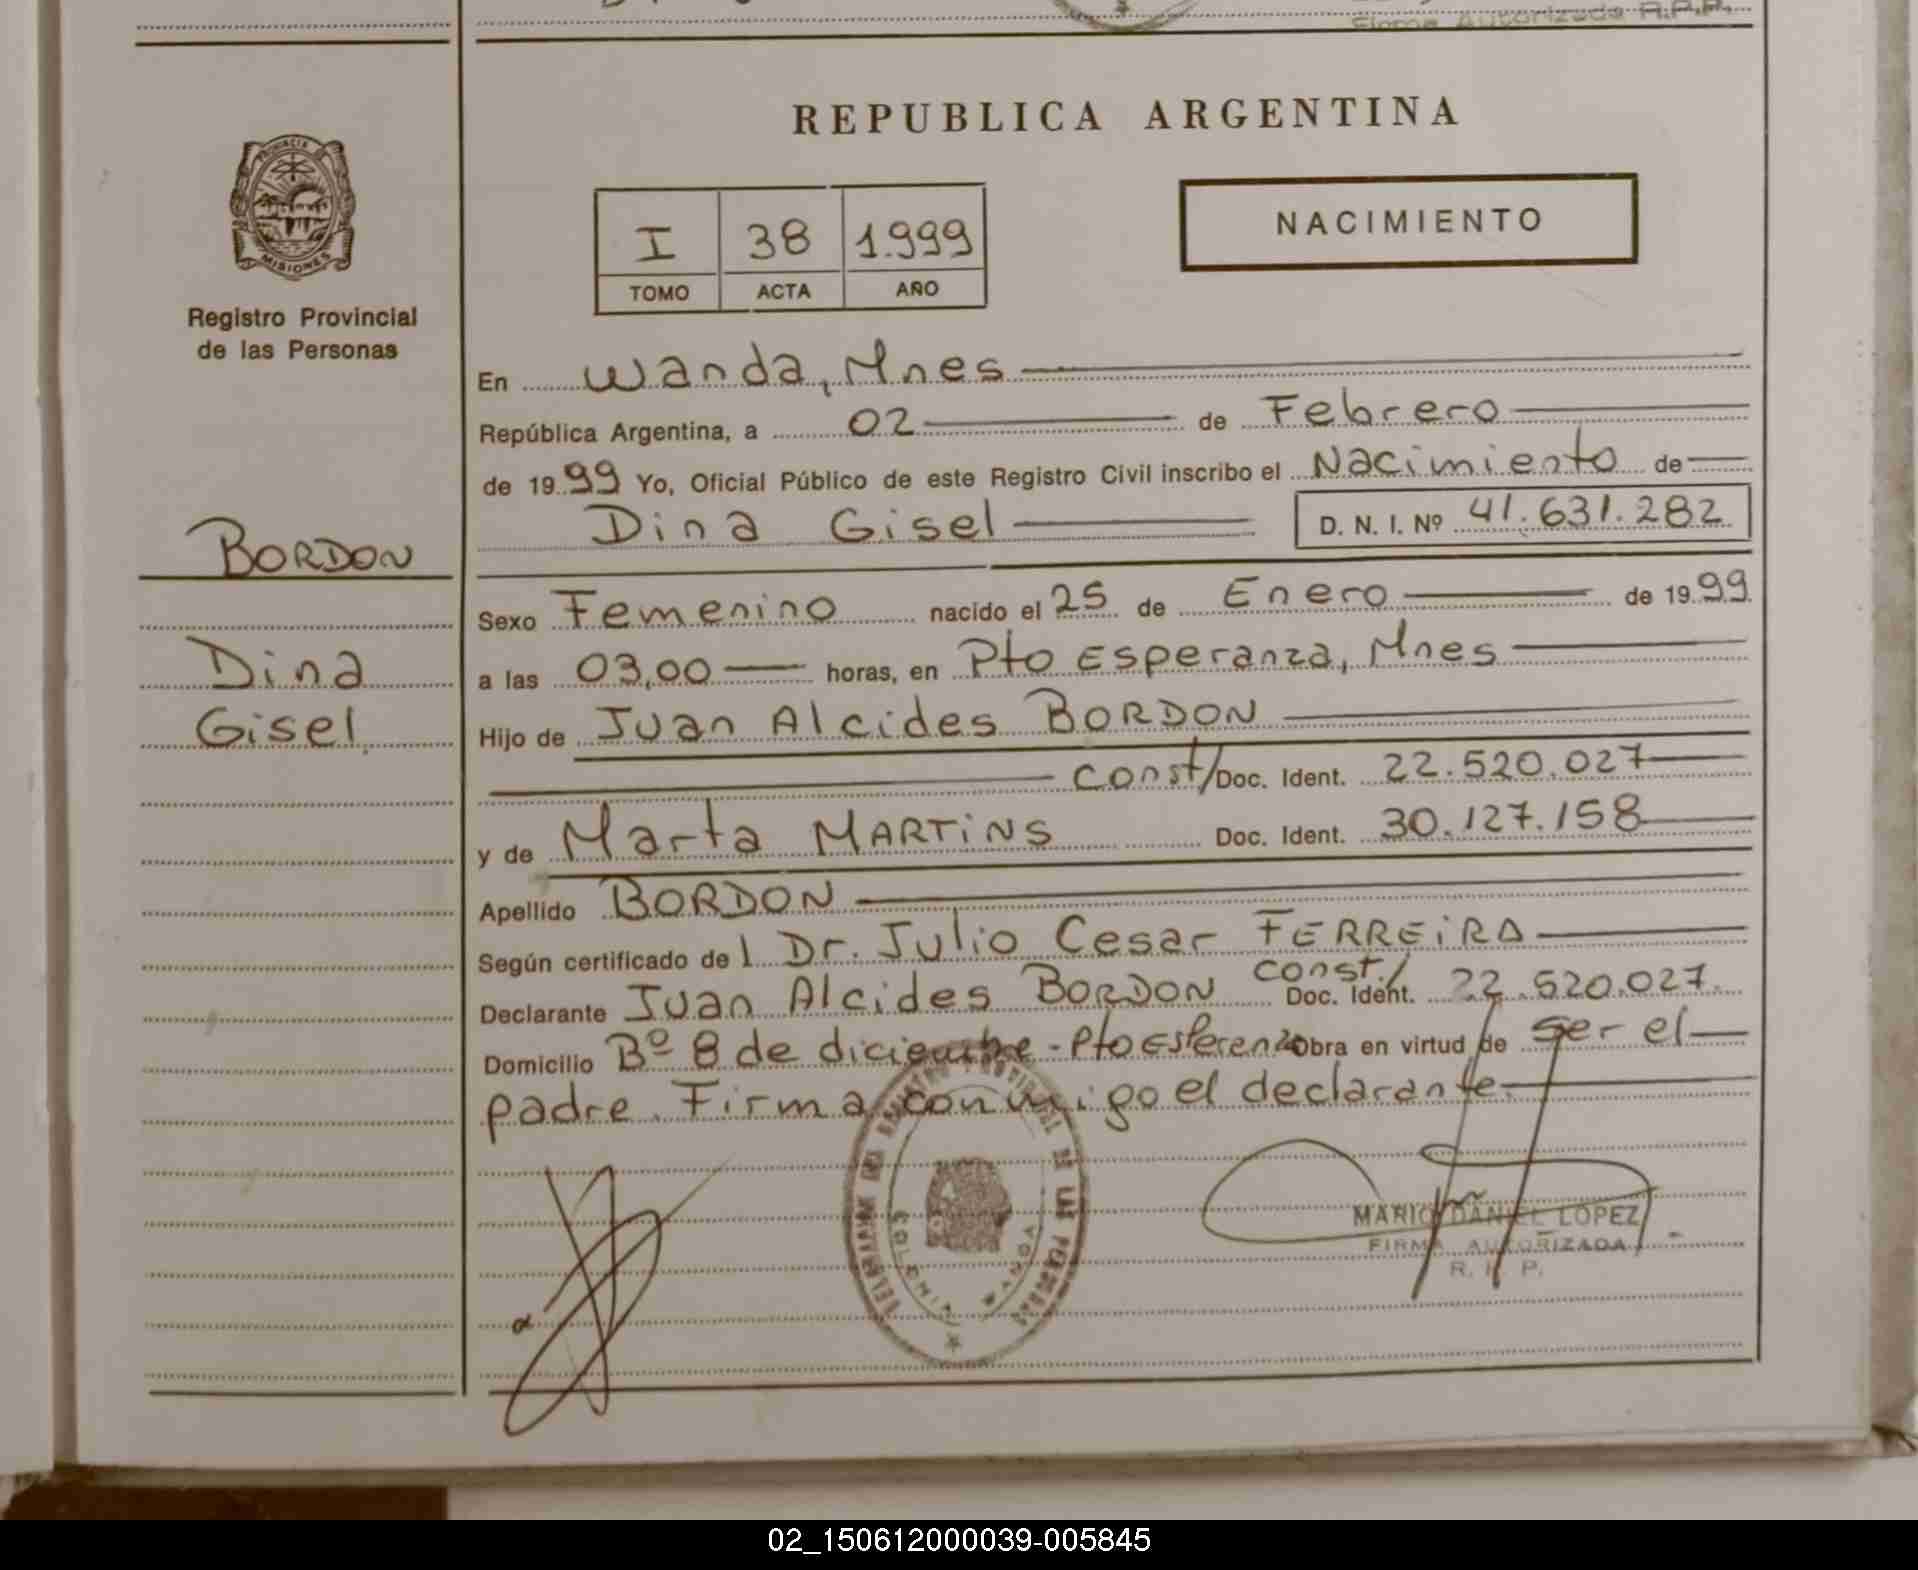 Firma Autorizada R.P.P.
REPUBLICA ARGENTINA
PROVINCIA
MISIONES
Registro Provincial
de las Personas
I 38 1.999
TOMO ACTA AÑO
NACIMIENTO
En Wanda, Mnes
República Argentina, a 02 de Febrero
de 19 99 Yo, Oficial Público de este Registro Civil inscribo el Nacimiento de
Dina Gisel D. N. I. Nº 41.631.282
BORDON
Dina
Gisel
Sexo Femenino nacido el 25 de Enero de 19 99
a las 03,00 horas, en Pto Esperanza, Mnes
Hijo de Juan Alcides BORDON
const/ Doc. Ident. 22.520.027
y de Marta MARTiNS Doc. Ident. 30.127.158
Apellido BORDON
Según certificado de l Dr. Julio Cesar FERREiRA
Declarante Juan Alcides BORDON const./ Doc. Ident. 22.520.027.
Domicilio Bº 8 de diciembre - Pto Esperanza Obra en virtud de ser el
padre. Firma conmigo el declarante.
REGISTRO PROVINCIAL DE LAS PERSONAS
WANDA
MARIO DANIEL LOPEZ
FIRMA AUTORIZADA
R. P. P.
02_150612000039-005845